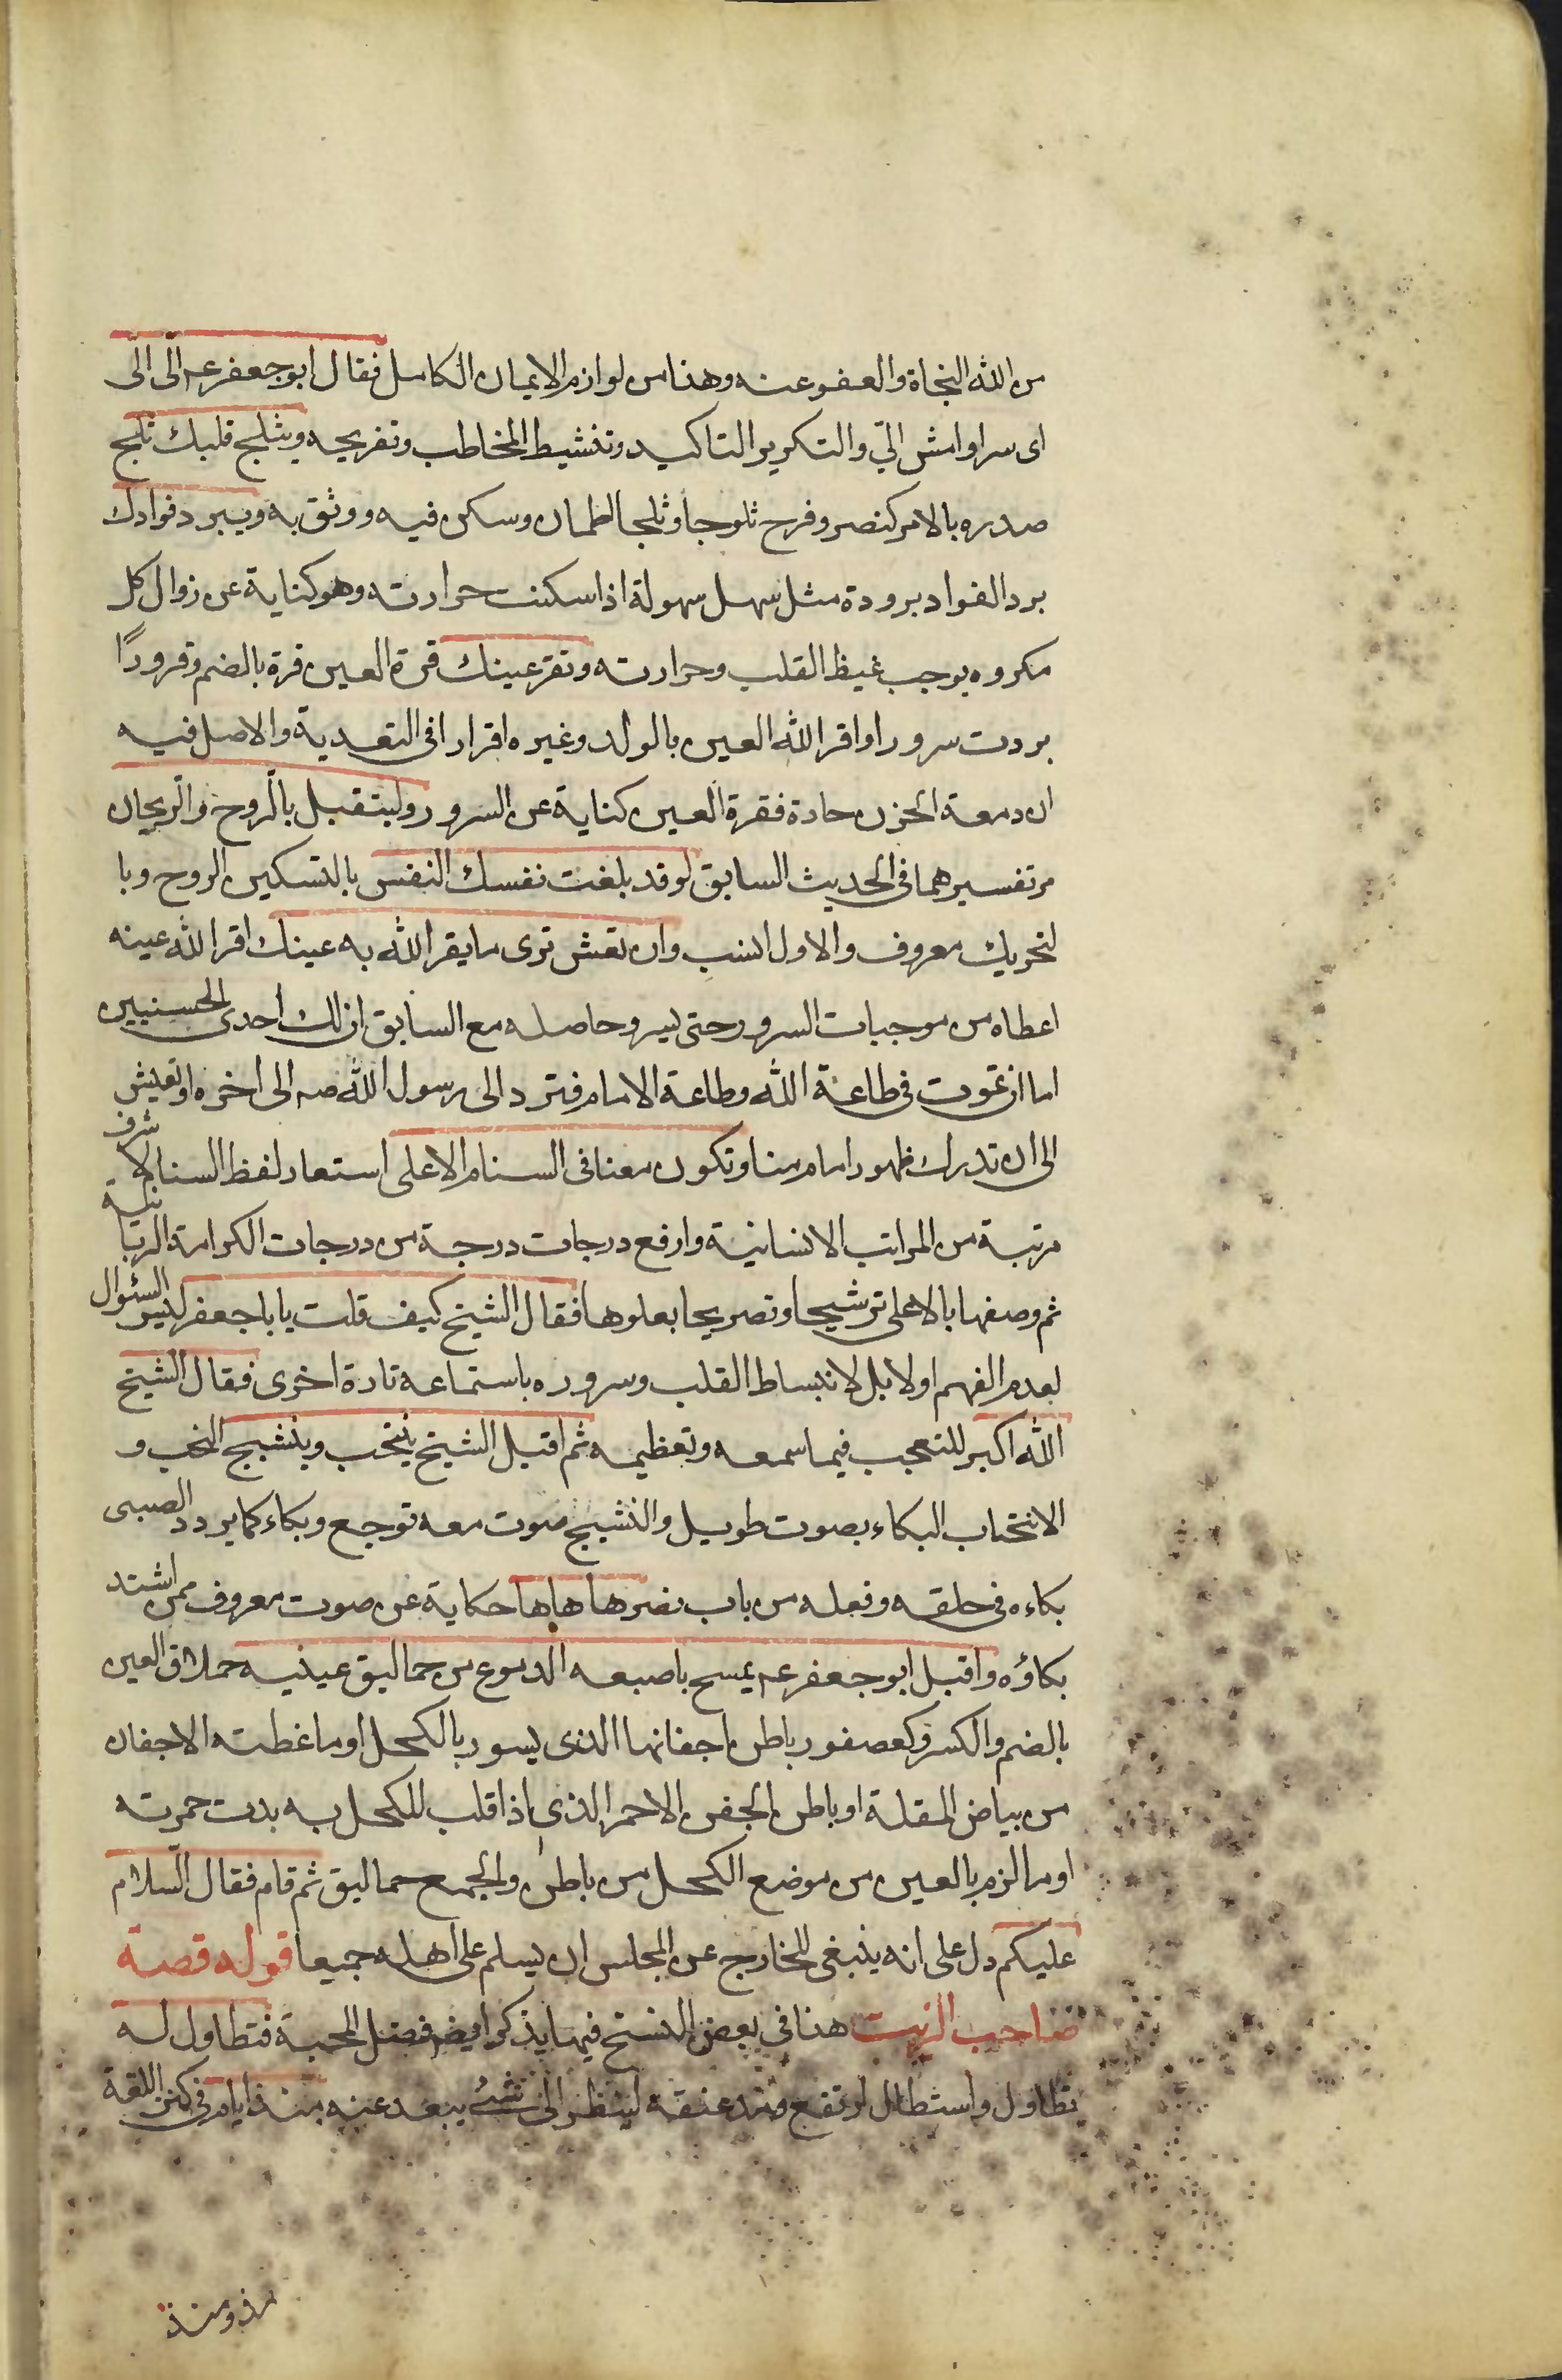 من الله النجاة والعفو عنه وهذا من لوازم الايمان الكامل فقال ابو جعفر عـ الىّ الىّ
اى سر او امش الىّ والتكرير التاكيد وتنشيط المخاطب وتفريحه ويثلج قلبك ثلج
صدره بالامر كنصر وفرح ثلوجا وثلجا اطمان وسكن فيه ووثق به ويبرد فوادك
برد الفواد برودة مثل سهل سهولة اذا سكنت حرارته وهو كناية عن زوال كل
مكروه يوجب غيظ القلب وحرارته وتقرّ عينك قرة العين قرة بالضم وقرورًا
بردت سرورا واقر الله العين بالولد وغيره اقرارا فى التعدية والاصل فيه
ان دمعة الحزن حادة فقرة العين كناية عن السرور وليتقبل بالروح والريحان
مر تفسيرهما فى الحديث السابق لو قد بلغت نفسك النفس بالتسكين الروح وبا
لتحريك معروف والاول انسب وان تعش ترى ما يقر الله به عينك اقر الله عينه
اعطاه من موجبات السرور حتى يسر وحاصله مع السابق ان لك احدى الحسنيين
اما ان تموت فى طاعة الله وطاعة الامام فترد الى رسول الله صـ الى اخره او تعيش
الى ان تدرك ظهور امام منا وتكون معنا فى السنام الاعلى استعار لفظ السنام لا شرف
مرتبة من المراتب الانسانية وارفع درجات درجة من درجات الكرامة الربانية
ثم وصفها بالاعلى ترشيحا وتصريحا بعلوها فقال الشيخ كيف قلت يا با جعفر ليس السئوال
لعدم الفهم اولا بل لانبساط القلب وسروره باستماعه تارة اخرى فقال الشيخ
الله اكبر للتعجب فيما سمعه وتعظيمه ثم اقبل الشيخ ينتحب وينشج النحب و
الانتحاب البكاء بصوت طويل والنشيج صوت معه توجع وبكاء كما يردد الصبى
بكاءه فى حلقه وفعله من باب نصر ها ها ها حكاية عن صوت معروف ممن اشتد
بكاؤه واقبل ابو جعفر عـ يمسح باصبعه الدموع من حماليق عينيه حملاق العين
بالضم والكسر وكعصفور باطن اجفانها الذى يسود بالكحل او ما غطته الاجفان
من بياض المقلة او باطن الجفن الاحمر الذى اذا قلب للكحل به بدت حمرته
او ما لزم بالعين من موضع الكحل من باطن والجمع حماليق ثم قام فقال السلام
عليكم دل على انه ينبغى للخارج عن المجلس ان يسلم على اهله جميعا قوله قصة
صاحب الزيت هذا فى بعض النسخ فيما يذكر ايضا فضل المحبة فتطاول له
تطاول واستطال ارتفع ومد عنقه لينظر الى شئ يبعد عنه منذ ايام فى كنز اللغة
مذ ومنذ